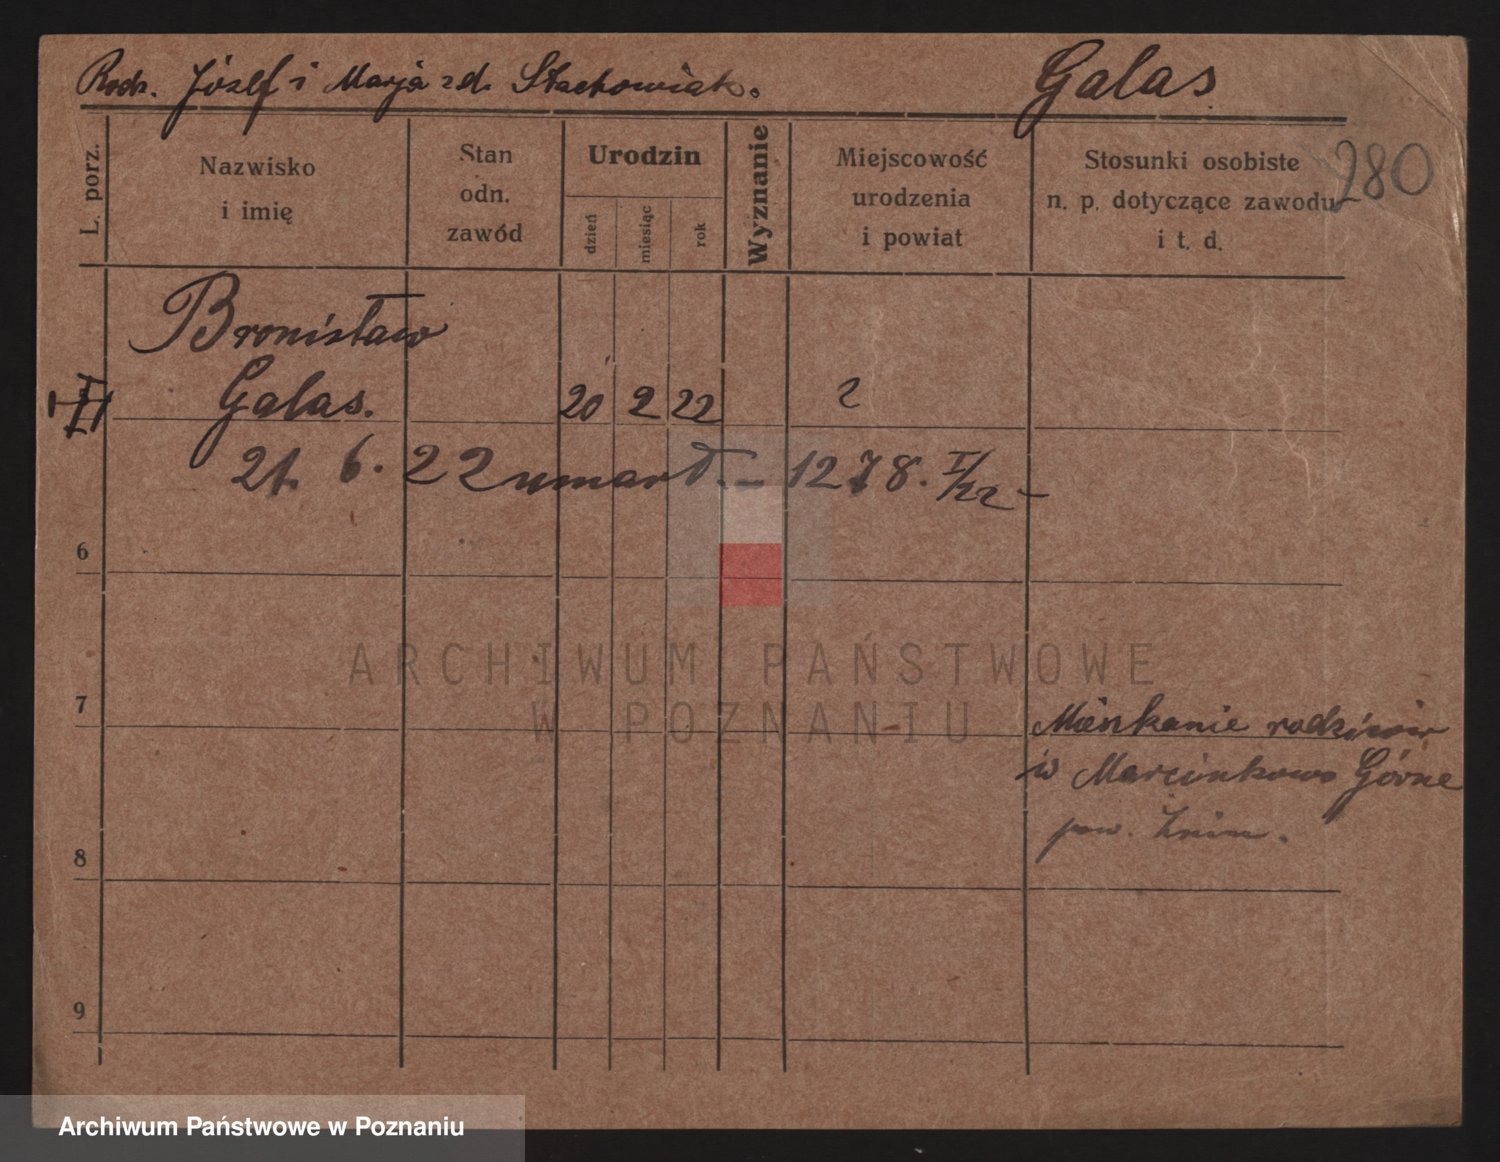 Rodz. Józef i Marja zd. Stachowiak.
Galas
280
L. porz.
Nazwisko
i imię
Stan
odn.
zawód
Urodzin
dzień
miesiąc
rok
Wyznanie
Miejscowość
urodzenia
i powiat
Stosunki osobiste
n. p. dotyczące zawodu
i t. d.
Bronisław
II Galas. 20 2 22 ?
21. 6. 22 umarł. – 1278. I/22 –
6
ARCHIWUM PAŃSTWOWE
W POZNANIU
7
Mieszkanie rodziców
w Marcinkowo Górne
pow. Żnin.
8
9
Archiwum Państwowe w Poznaniu